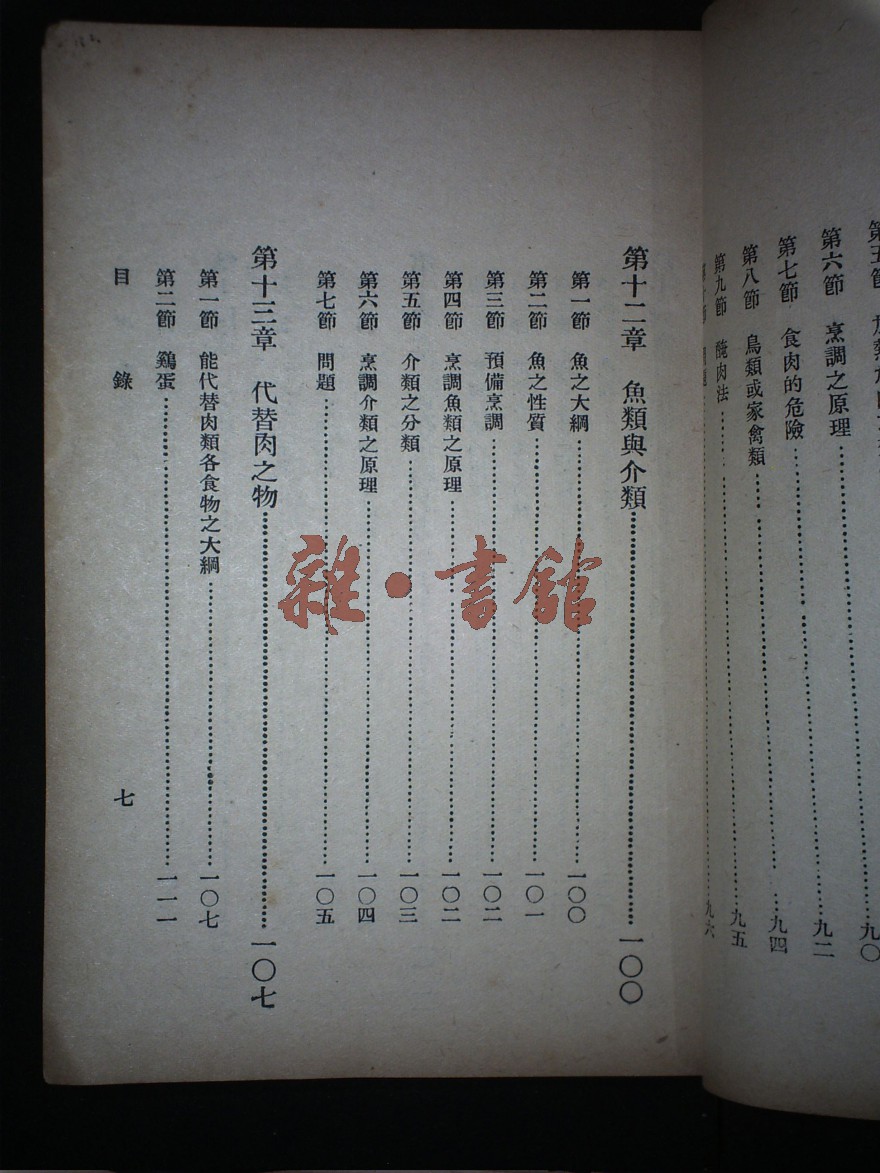 第六節　烹調之原理……九二
第七節　食肉的危險……九四
第八節　鳥類或家禽類……九五
第九節　醃肉法……九六
第十二章　魚類與介類……一〇〇
第一節　魚之大綱……一〇〇
第二節　魚之性質……一〇一
第三節　預備烹調……一〇二
第四節　烹調魚類之原理……一〇二
第五節　介類之分類……一〇三
第六節　烹調介類之原理……一〇四
第七節　問題……一〇五
第十三章　代替肉之物……一〇七
第一節　能代替肉類各食物之大綱……一〇七
第二節　鷄蛋……一一一
目錄
七
雜·書館